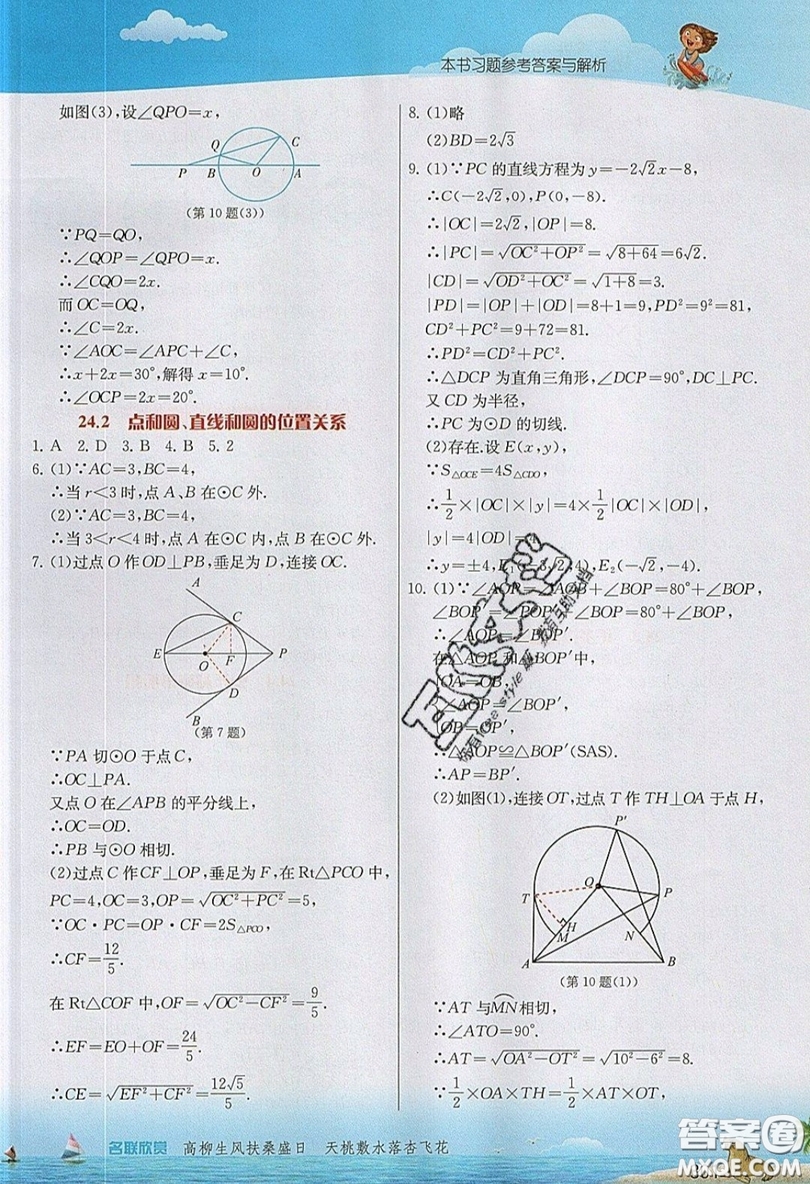 本书习题参考答案与解析
如图(3),设∠QPO=x,
Q
C
P
B
O
A
(第10题(3))
∵PQ=QO,
∴∠QOP=∠QPO=x.
∴∠CQO=2x.
而OC=OQ,
∴∠C=2x.
∵∠AOC=∠APC+∠C,
∴x+2x=30°,解得x=10°.
∴∠OCP=2x=20°.
24.2 点和圆、直线和圆的位置关系
1. A 2. D 3. B 4. B 5. 2
6. (1)∵AC=3,BC=4,
∴当r<3时,点A、B在⊙C外.
(2)∵AC=3,BC=4,
∴当3<r<4时,点A在⊙C内,点B在⊙C外.
7. (1)过点O作OD⊥PB,垂足为D,连接OC.
A
C
E
O
F
P
D
B
(第7题)
∵PA切⊙O于点C,
∴OC⊥PA.
又点O在∠APB的平分线上,
∴OC=OD.
∴PB与⊙O相切.
(2)过点C作CF⊥OP,垂足为F,在Rt△PCO中,
PC=4,OC=3,OP=√(OC²+PC²)=5,
∵OC·PC=OP·CF=2S△PCO,
∴CF=12/5.
在Rt△COF中,OF=√(OC²-CF²)=9/5.
∴EF=EO+OF=24/5.
∴CE=√(EF²+CF²)=12√5/5.
8. (1)略
(2)BD=2√3
9. (1)∵PC的直线方程为y=-2√2x-8,
∴C(-2√2,0),P(0,-8).
∴|OC|=2√2,|OP|=8.
∴|PC|=√(OC²+OP²)=√(8+64)=6√2.
|CD|=√(OD²+OC²)=√(1+8)=3.
|PD|=|OP|+|OD|=8+1=9,PD²=9²=81,
CD²+PC²=9+72=81.
∴PD²=CD²+PC².
∴△DCP为直角三角形,∠DCP=90°,DC⊥PC.
又CD为半径,
∴PC为⊙D的切线.
(2)存在.设E(x,y),
∵S△OCE=4S△CDO,
∴1/2×|OC|×|y|=4×1/2|OC|×|OD|,
|y|=4|OD|=
∴y=±4,E₁(-3√2,4),E₂(-√2,-4).
10. (1)∵∠AOP=∠AOB+∠BOP=80°+∠BOP,
∠BOP′=∠POP′+∠BOP=80°+∠BOP,
∴∠AOP=∠BOP′.
在△AOP和△BOP′中,
OA=OB,
∠AOP=∠BOP′,
OP=OP′,
∴△AOP≌△BOP′(SAS).
∴AP=BP′.
(2)如图(1),连接OT,过点T作TH⊥OA于点H,
P′
O
T
P
H
M
N
A
B
(第10题(1))
∵AT与MN相切,
∴∠ATO=90°.
∴AT=√(OA²-OT²)=√(10²-6²)=8.
∵1/2×OA×TH=1/2×AT×OT,
名联欣赏 高柳生风扶桑盛日 天桃敷水落杏飞花
答案圈
MXQE.COM